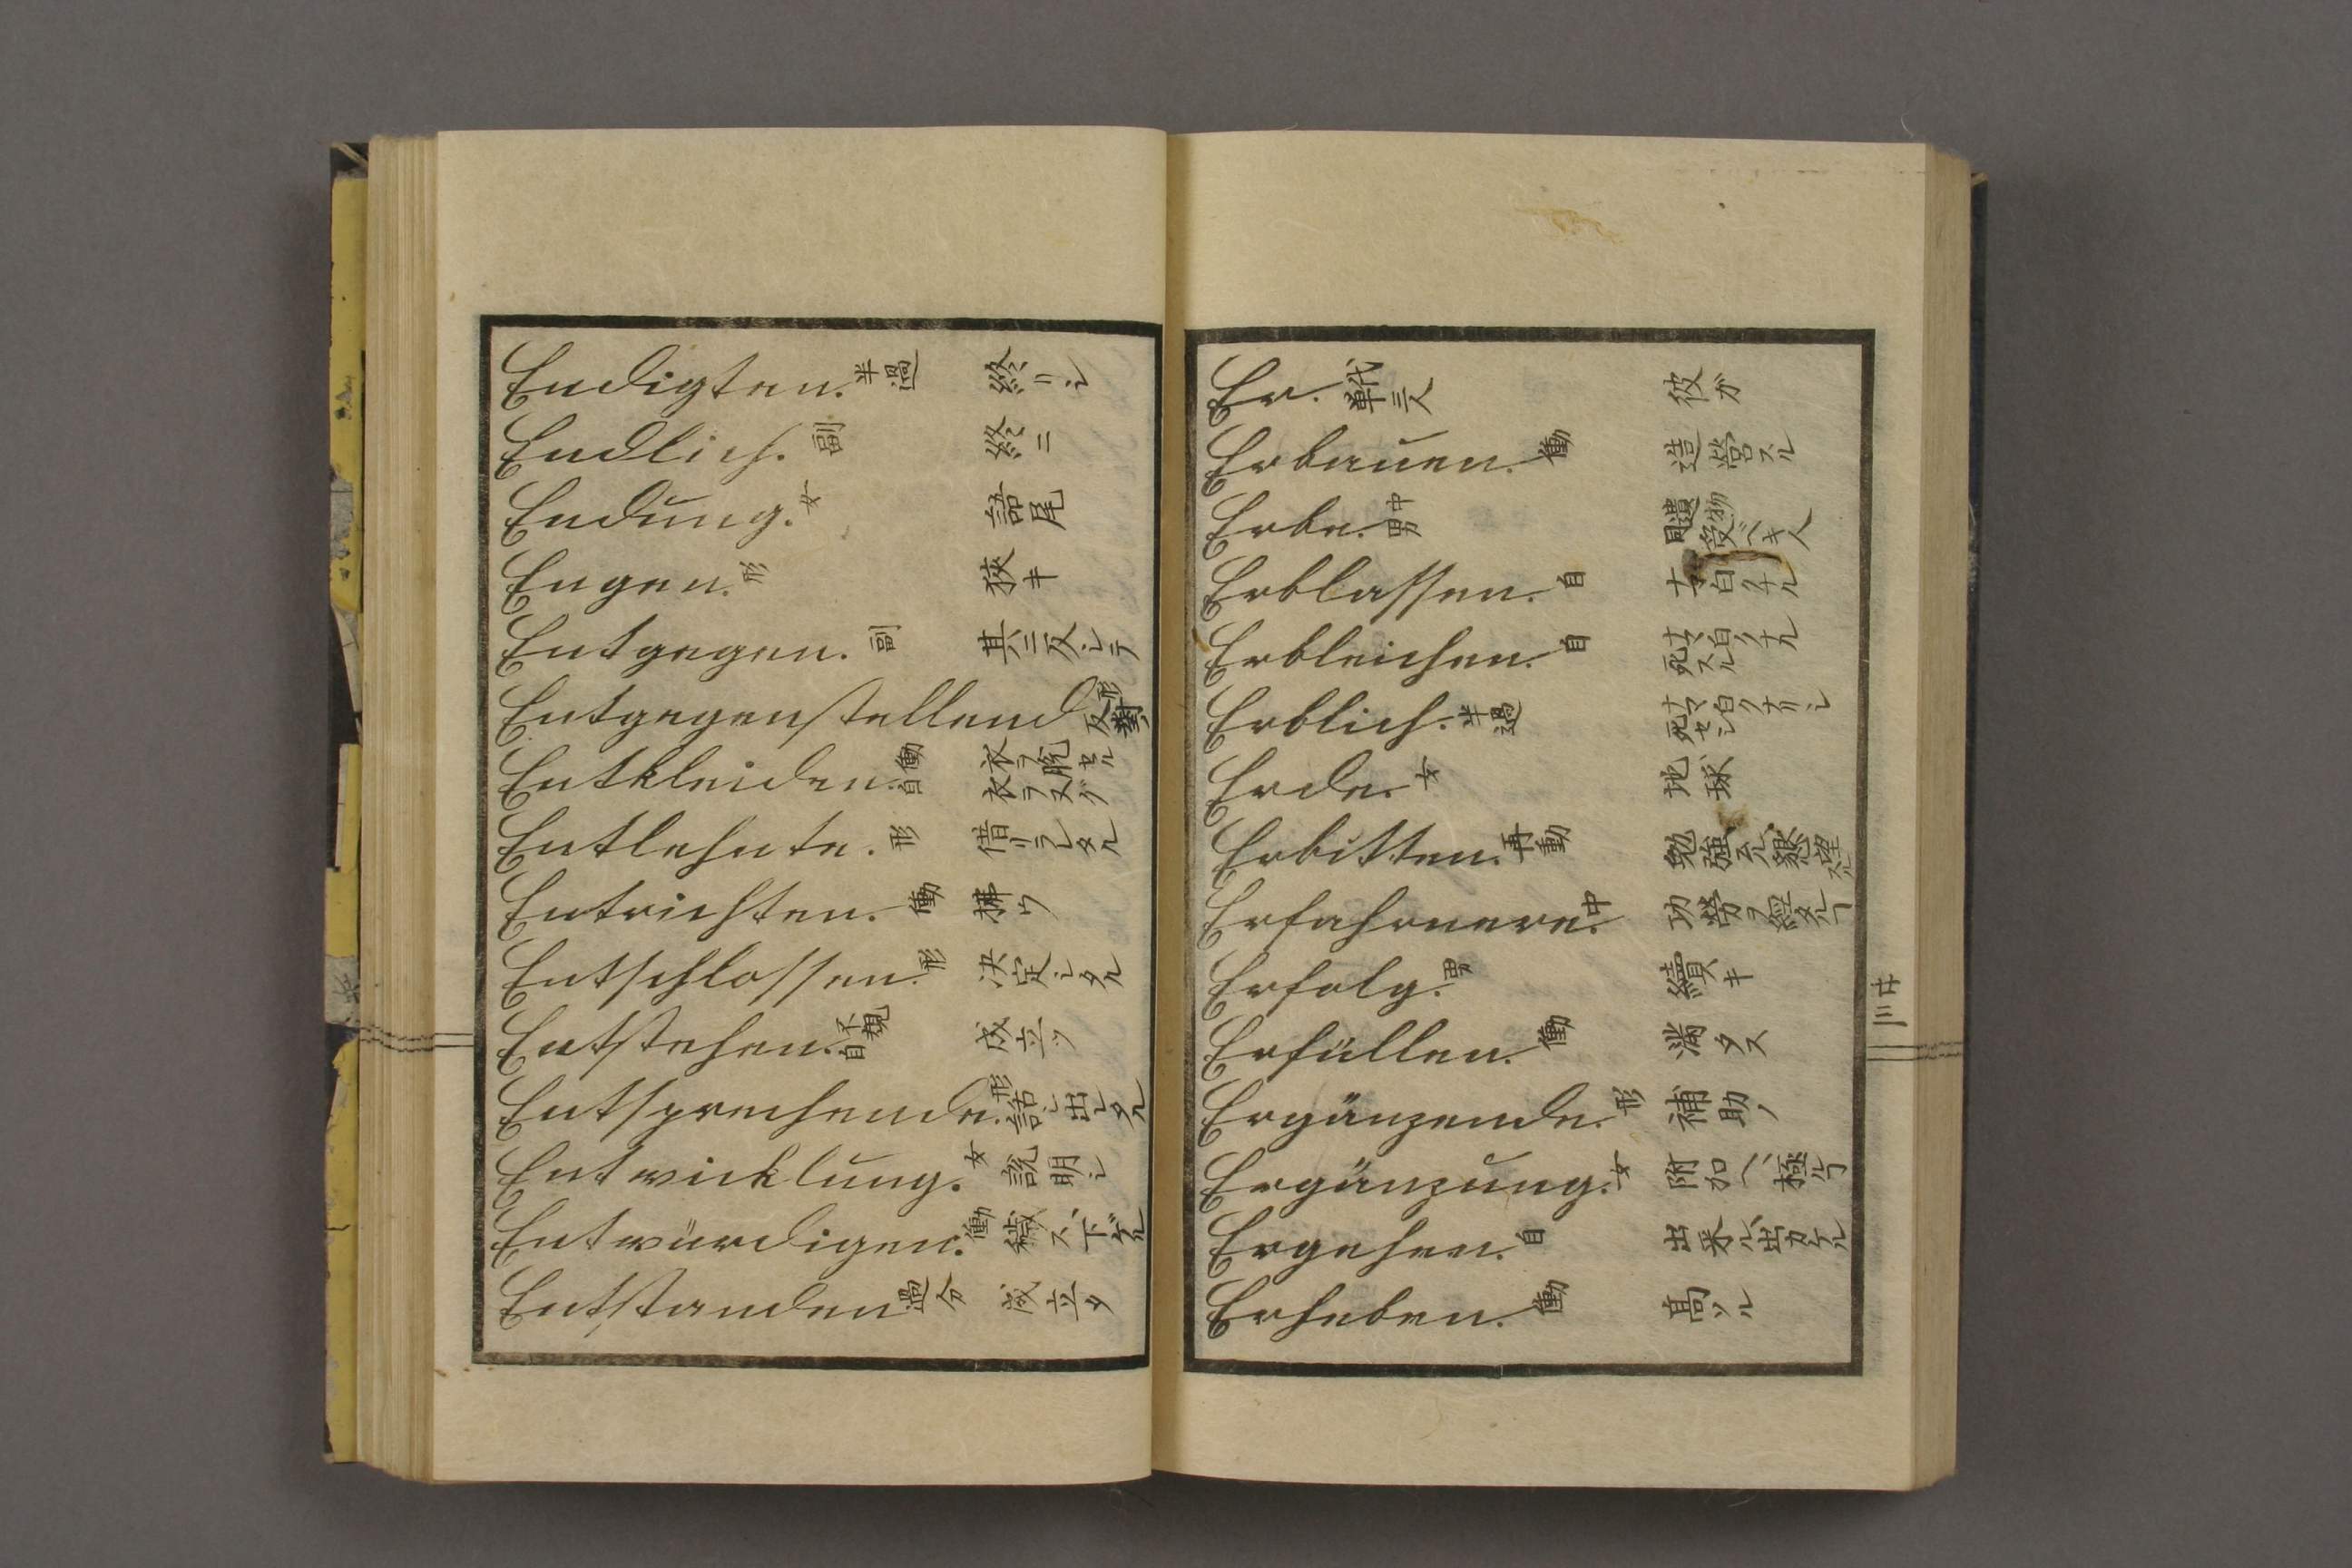 Endigten. 半過 終リシ
Endlich. 副 終ニ
Endung. 女 語尾
Engen. 形 狹キ
Entgegen. 副 其ニ反シテ
Entgegenstellend 形 反對
Entkleiden. 働自 衣ヲ脱セル 衣ヲヌグ
Entlehnte. 形 借リラレタル
Entrichten. 働 拂ウ
Entschlossen. 形 決定シタル
Entstehen. 不規自 成立ツ
Entsprechende. 形 話シ出シタル
Entwicklung. 女 説明シ
Entwürdigen. 働 穢ス、下ゲル
Entstanden 過分 成立タ
Er. 単代三人 彼ガ
Erbauen. 働 造營スル
Erbe. 中男 遺物 受ベキ人
Erblassen. 自 白クナル
Erbleichen. 自 白クナル 死スル
Erblich. 半過 白クナリシ 死セシ
Erde. 女 地球
Erbitten. 再動 勉強スル、懇望スル
Erfahrnere. 中 功勞ヲ經タルヿ
Erfolg. 男 續キ
Erfüllen. 働 満タス
Ergänzende. 形 補助ノ
Ergänzung. 女 附加ヘ、極ルヿ
Ergehen. 自 出来ル、出カケル
Erheben. 働 高ツル
廿三